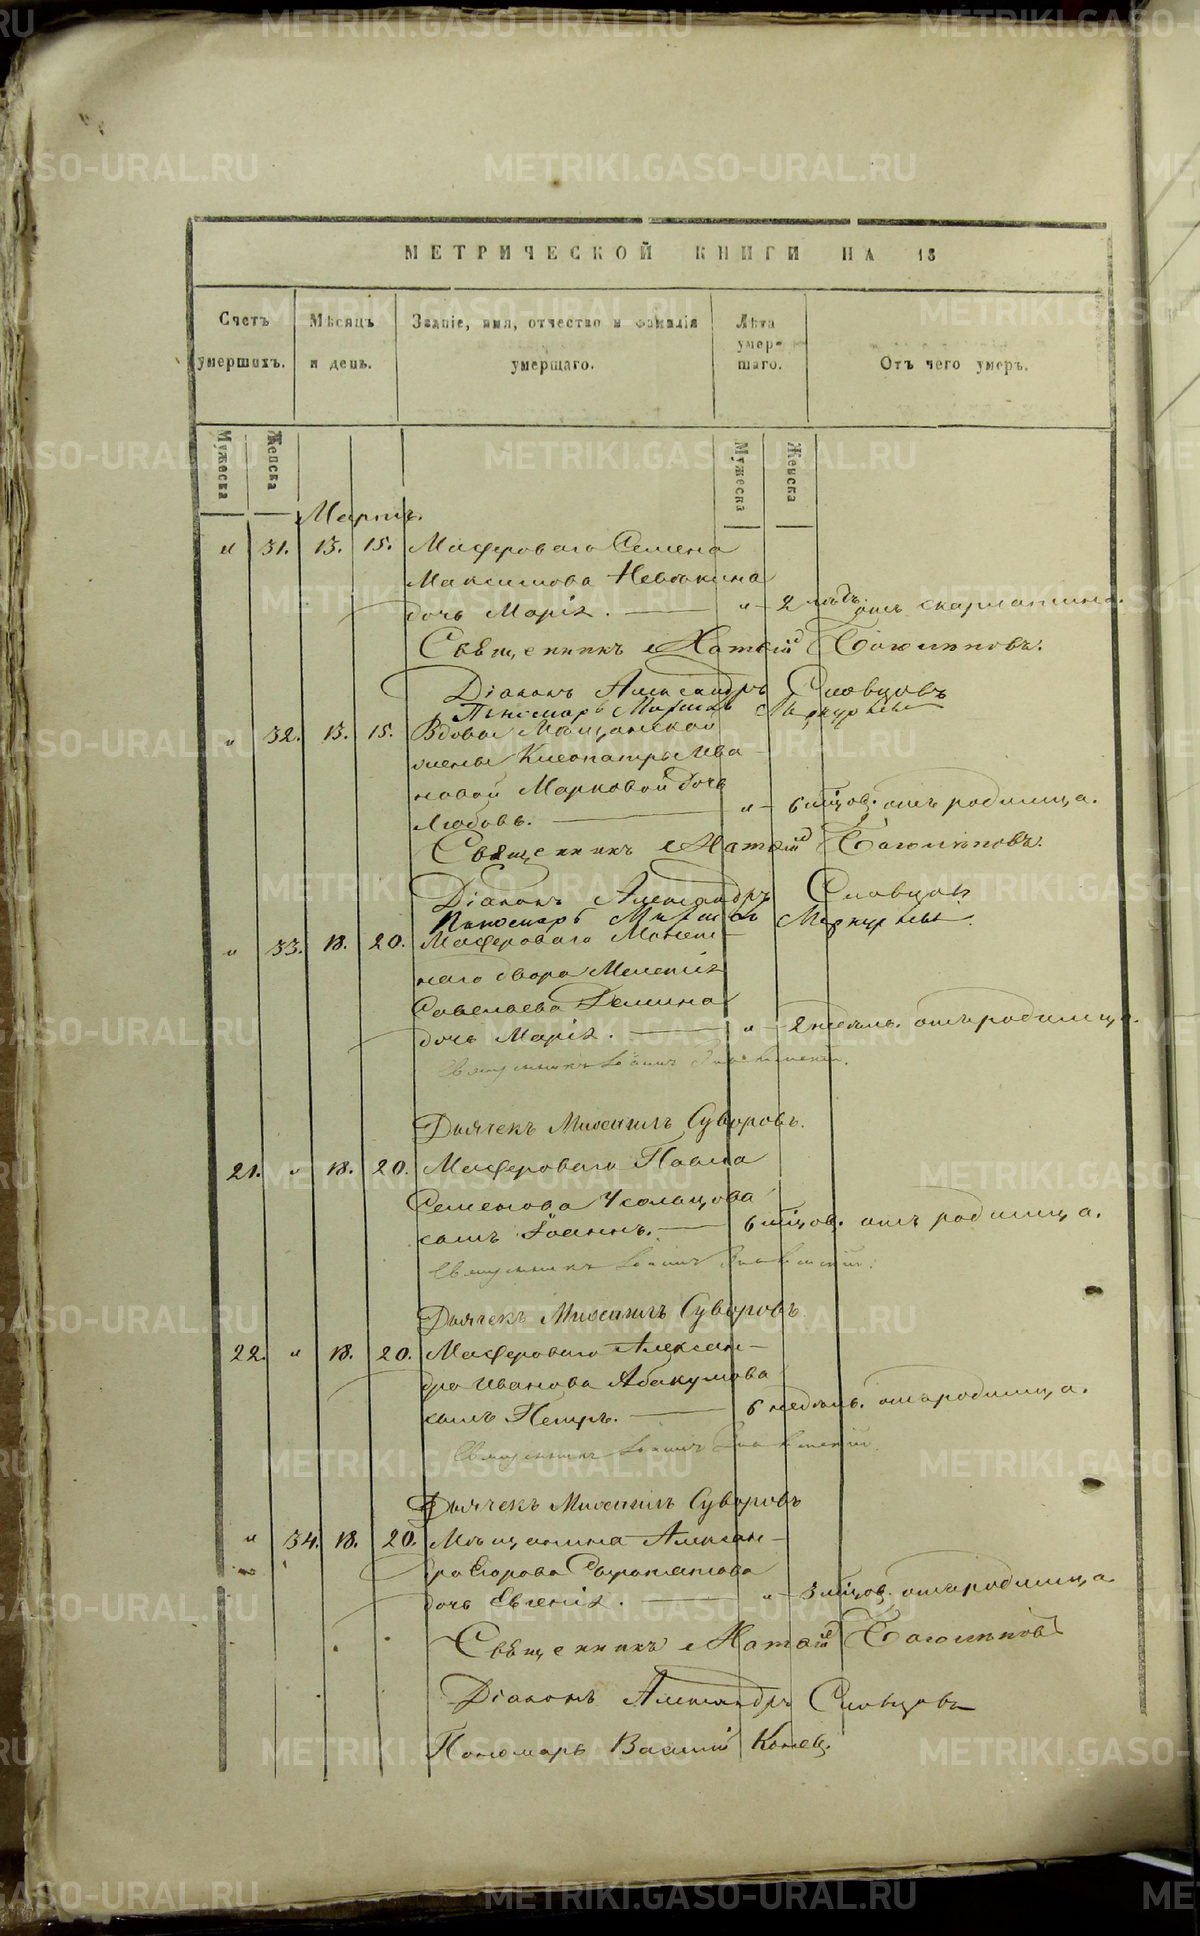 МЕТРИЧЕСКОЙ КНИГИ НА 18
Счетъ умершихъ.
Мѣсяцъ и день.
Званіе, имя, отчество и фамилія умершаго.
Лѣта умершаго.
Отъ чего умеръ.
Мужеска
Женска
Мужеска
Женска
Мартъ.
„ 31. 13. 15. Мастероваго Семена
Максимова
дочь Марія. — „ — 2 лѣтъ отъ скарлатины.
Священникъ
Діаконъ Александръ Словцовъ
Пономарь Меркурьевъ
„ 32. 13. 15. Вдовы Мѣщанской
жены Клеопатры Ива
новой Марковой дочь
Любовь. — „ — 6 мѣцов. отъ родимца.
Священникъ
Діаконъ Александръ Словцовъ
Пономарь Меркурьевъ
„ 33. 18. 20. Мастероваго Монет-
наго двора Мелетія
Савельева Демина
дочь Марія. — „ — 2 недѣль. отъ родимца.
Священникъ Іоаннъ
Дьячекъ Михаилъ Суворовъ.
21. „ 18. 20. Мастероваго Павла
Семенова Усольцова
сынъ Іоаннъ. — 6 мѣцов. отъ родимца.
Священникъ Іоаннъ
Дьячекъ Михаилъ Суворовъ
22. „ 18. 20. Мастероваго Алексан-
дра Иванова Абакумова
сынъ Петръ. — 6 недѣль. отъ родимца.
Священникъ Іоаннъ
Дьячекъ Михаилъ Суворовъ
„ 34. 18. 20. Мѣщанина Алексан-
дра Егорова
дочь Евгенія. — „ — 3 мѣцов. отъ родимца.
Священникъ
Діаконъ Александръ Словцовъ
Пономарь Василій
METRIKI.GASO-URAL.RU